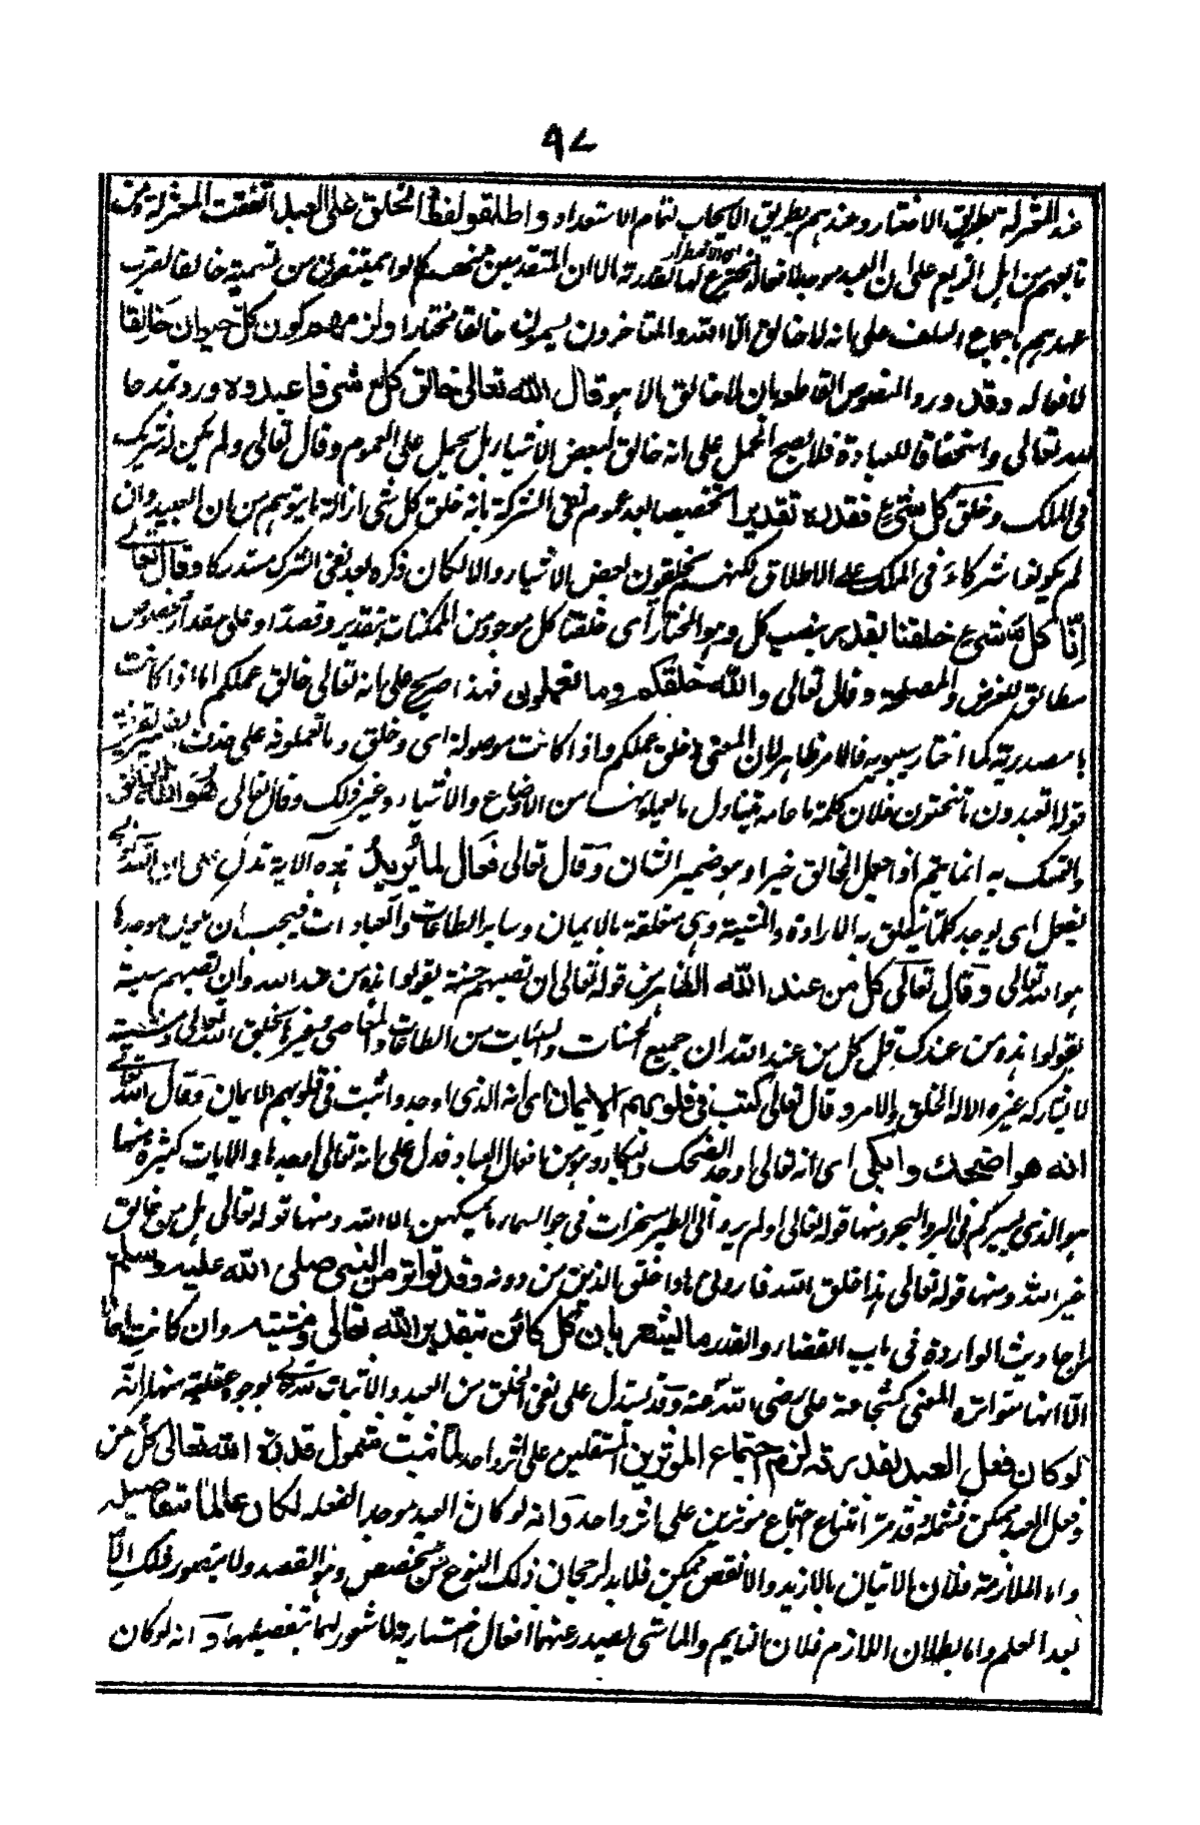 ٩٧
عند المعتزلة بطريق الاختيار وعندهم بطريق الايجاب لتمام الاستعداد واطلقوا لفظ الخالق على العبد اتفقت المعتزلة ومن
تابعهم من اهل الزيغ على ان العبد موجد لافعاله مخترع لها بقدرته الا ان المتقدمين منهم كانوا يمتنعون من تسمية خالقا لقرب
عهدهم باجماع السلف على انه لا خالق الا الله والمتاخرون يسمونه خالقا مختارا ولزمهم كون كل حيوان خالقا
لافعاله وقد ورد النصوص القاطعة بان لا خالق الا هو قال الله تعالى خالق كل شى فاعبدوه ورد تمدحا
لله تعالى واستحقاقا للعبادة فلا يصح الحمل على انه خالق لبعض الاشياء بل يحمل على العموم وقال تعالى ولم يكن له شريك
فى الملك وخلق كل شىء فقدره تقديرا تخصيصا بعد عموم نفى الشركة بانه خلق كل شى ازالة ما يتوهم من ان العبيد وان
لم يكونوا شركاء فى الملك على الاطلاق لكنهم يخلقون بعض الاشياء والا لكان ذكره بعد نفى الشرك مستدركا وقال تعالى
انا كل شىء خلقنا بقدر بنصب كل وهو المختار اى خلقنا كل موجود من الممكنات بتقدير وقصد او على مقدار مخصوص
مطابق للغرض والمصلحة وقال تعالى والله خلقكم وما تعملون فهذا صريح على انه تعالى خالق عملكم اما اذا كانت
ما مصدرية كما اختار سيبويه فالامر ظاهر لان المعنى وخلق عملكم واذا كانت موصولة اى وخلق ما تعملونه على حذف الضمير بقرينة
قوله اتعبدون ما تنحتون فلان كلمة ما عامة فيتناول ما يعملونه من الاوضاع والاشياء وغير ذلك وقال تعالى هو الله الخالق
والتمسك به انما يتم اذا جعل الخالق خبرا وهو ضمير الشان وقال تعالى فعال لما يريد هذه الآية تدل على ان الله تعالى
يفعل اى يوجد كلما يتعلق به الارادة والمشية وهى متعلقة بالايمان وساير الطاعات والعبادات فيجب ان يكون موجدها
هو الله تعالى وقال تعالى كل من عند الله الظاهر من قوله تعالى ان تصبهم حسنة يقولوا هذه من عند الله وان تصبهم سيئة
يقولوا هذه من عندك قل كل من عند الله ان جميع الحسنات والسيئات من الطاعات والمعاصى وغيرها بخلق الله تعالى ومشيته
لا يشاركه غيره الا له الخلق والامر وقال تعالى كتب فى قلوبهم الايمان اى انه الذى اوجد واثبت فى قلوبهم الايمان وقال الله تعالى
انه هو اضحك وابكى اى انه تعالى اوجد الضحك والبكاء وهو من افعال العباد فدل على انه تعالى موجدها والايات كثيرة منها
هو الذى يسيركم فى البر والبحر ومنها قوله تعالى اولم يروا الى الطير مسخرات فى جو السماء ما يمسكهن الا الله ومنها قوله تعالى هل من خالق
غير الله ومنها قوله تعالى هذا خلق الله فارونى ماذا خلق الذين من دونه وقد تواتر من النبى صلى الله عليه وسلم
الاحاديث الواردة فى باب القضاء والقدر ما يشعر بان كل كائن بتقدير الله تعالى ومشيته وان كانت احادا
الا انها متواترة المعنى كشجاعة على رضى الله عنه وقد يستدل على نفى الخلق من العبد والاثبات لله بوجوه عقلية منها انه
لو كان فعل العبد بقدرته لزم اجتماع المؤثرين المستقلين على اثر واحد لما ثبت شمول قدرة الله تعالى كل ممكن
وفعل العبد ممكن فيشمله وقد مر امتناع اجتماع موثرين على اثر واحد وانه لو كان العبد موجد الفعله لكان عالما بتفاصيله
واما الملازمة فلان الاتيان بالازيد والانقص ممكن فلا بد لرجحان ذلك النوع من مخصص وهو القصد ولا يتصور ذلك الا
بعد العلم واما بطلان اللازم فلان النايم والماشى يصدر عنهما افعال اختيارية لا شعور لهما بتفصيلها وانه لو كان